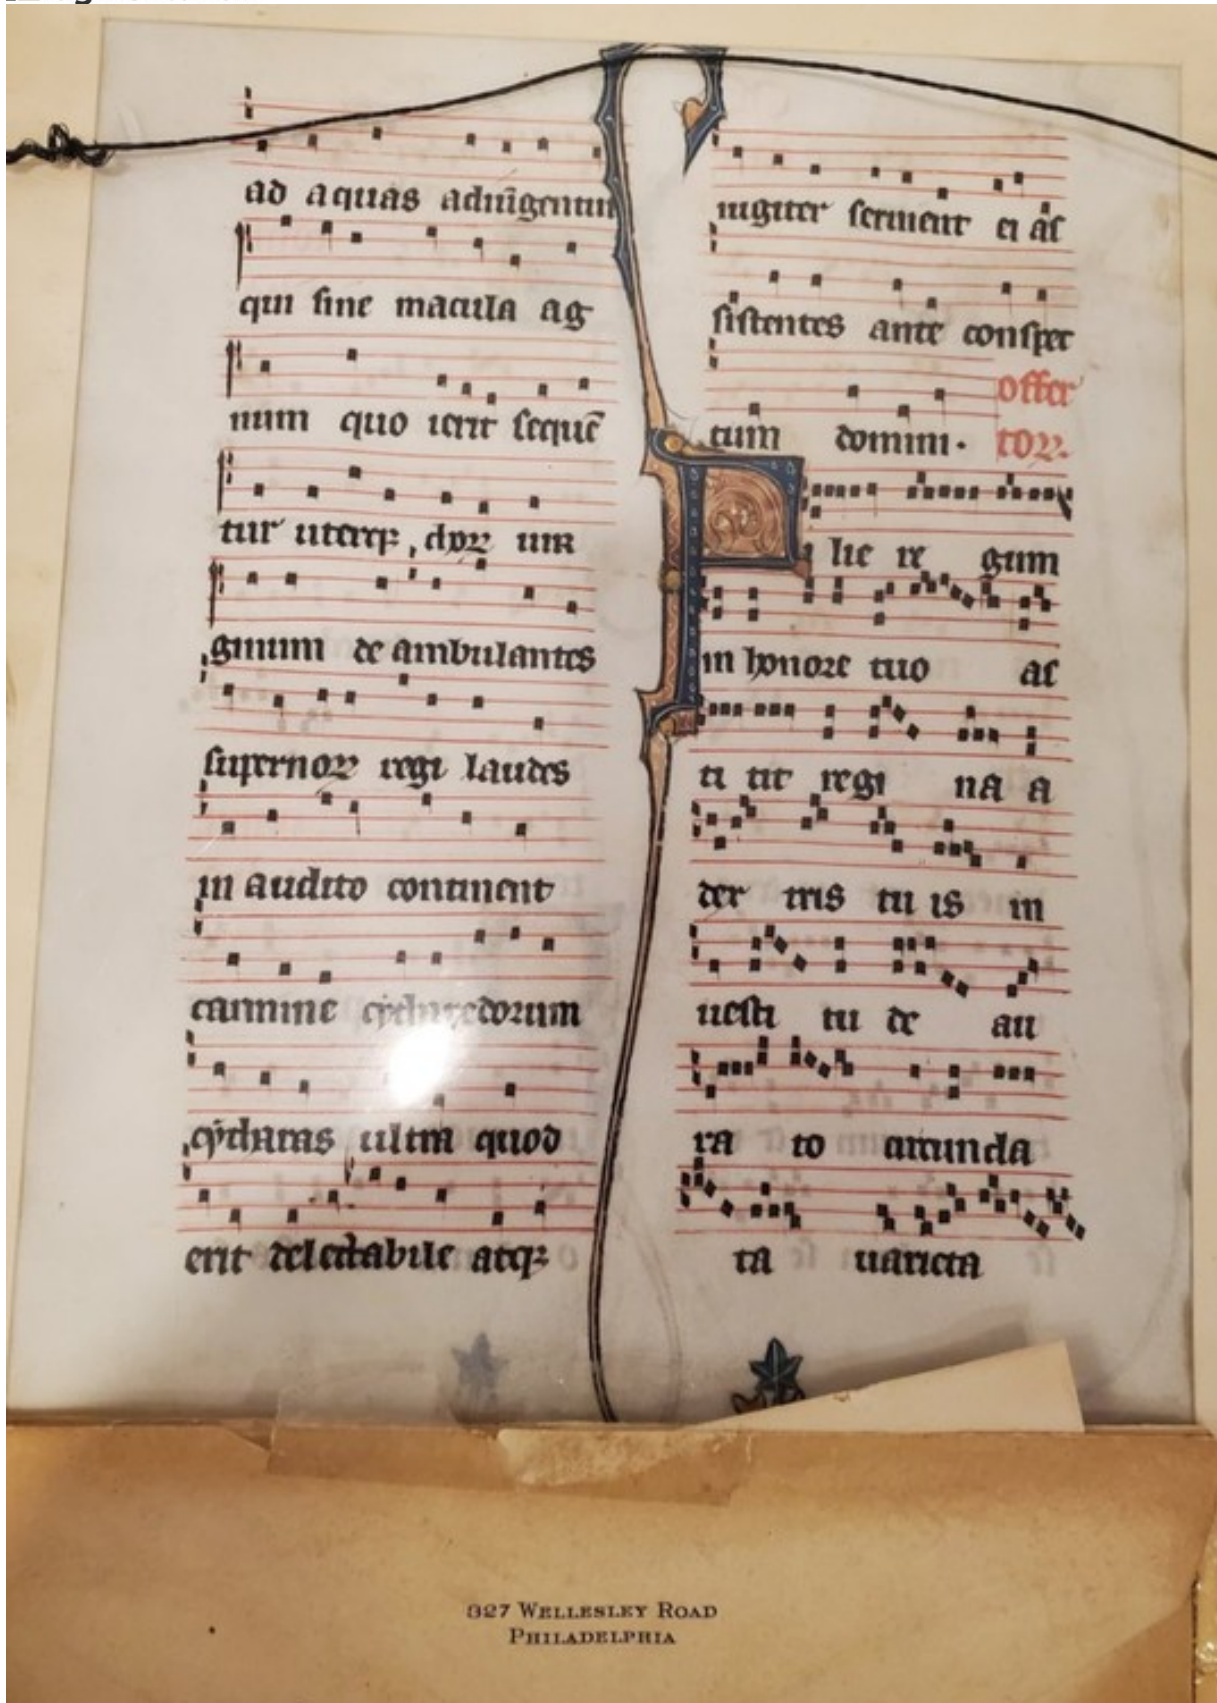 ad aquas adiūgentur
qui sine macula ag
num quo ierit sequē
tur uterqꝫ choꝝ uir
gnium de ambulantes
supernoꝝ regi laudes
in audito continent
carmine cytharedorum
cytharas ultra quod
erit delectabile atqꝫ
iugiter seruient ei as
sistentes ante conspec
offer
tum domini.
toꝝ.
Filie regum
in honore tuo as
ti tit regi na a
dex tris tu is in
uesti tu de au
ra to circunda
ta uarieta
327 WELLESLEY ROAD
PHILADELPHIA